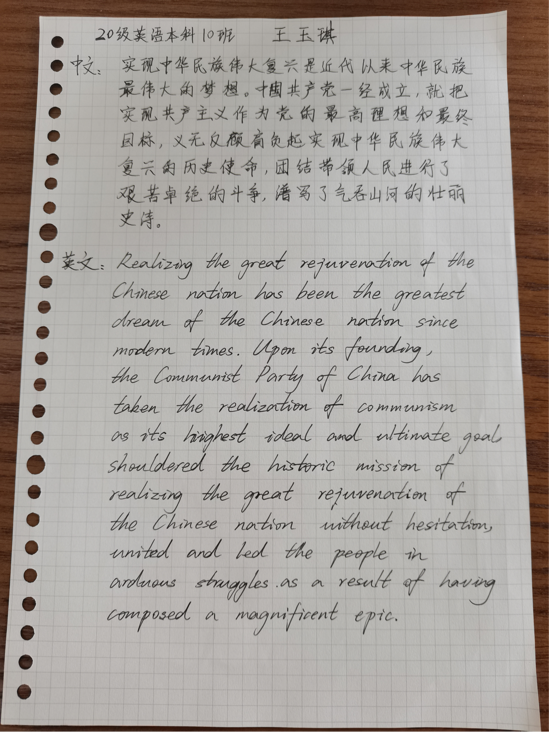 20级英语本科10班 王玉琪
中文: 实现中华民族伟大复兴是近代以来中华民族
最伟大的梦想。中国共产党一经成立,就把
实现共产主义作为党的最高理想和最终
目标,义无反顾肩负起实现中华民族伟大
复兴的历史使命,团结带领人民进行了
艰苦卓绝的斗争,谱写了气吞山河的壮丽
史诗。
英文: Realizing the great rejuvenation of the
Chinese nation has been the greatest
dream of the Chinese nation since
modern times. Upon its founding,
the Communist Party of China has
taken the realization of communism
as its highest ideal and ultimate goal,
shouldered the historic mission of
realizing the great rejuvenation of
the Chinese nation without hesitation,
united and led the people in
arduous struggles.as a result of having
composed a magnificent epic.